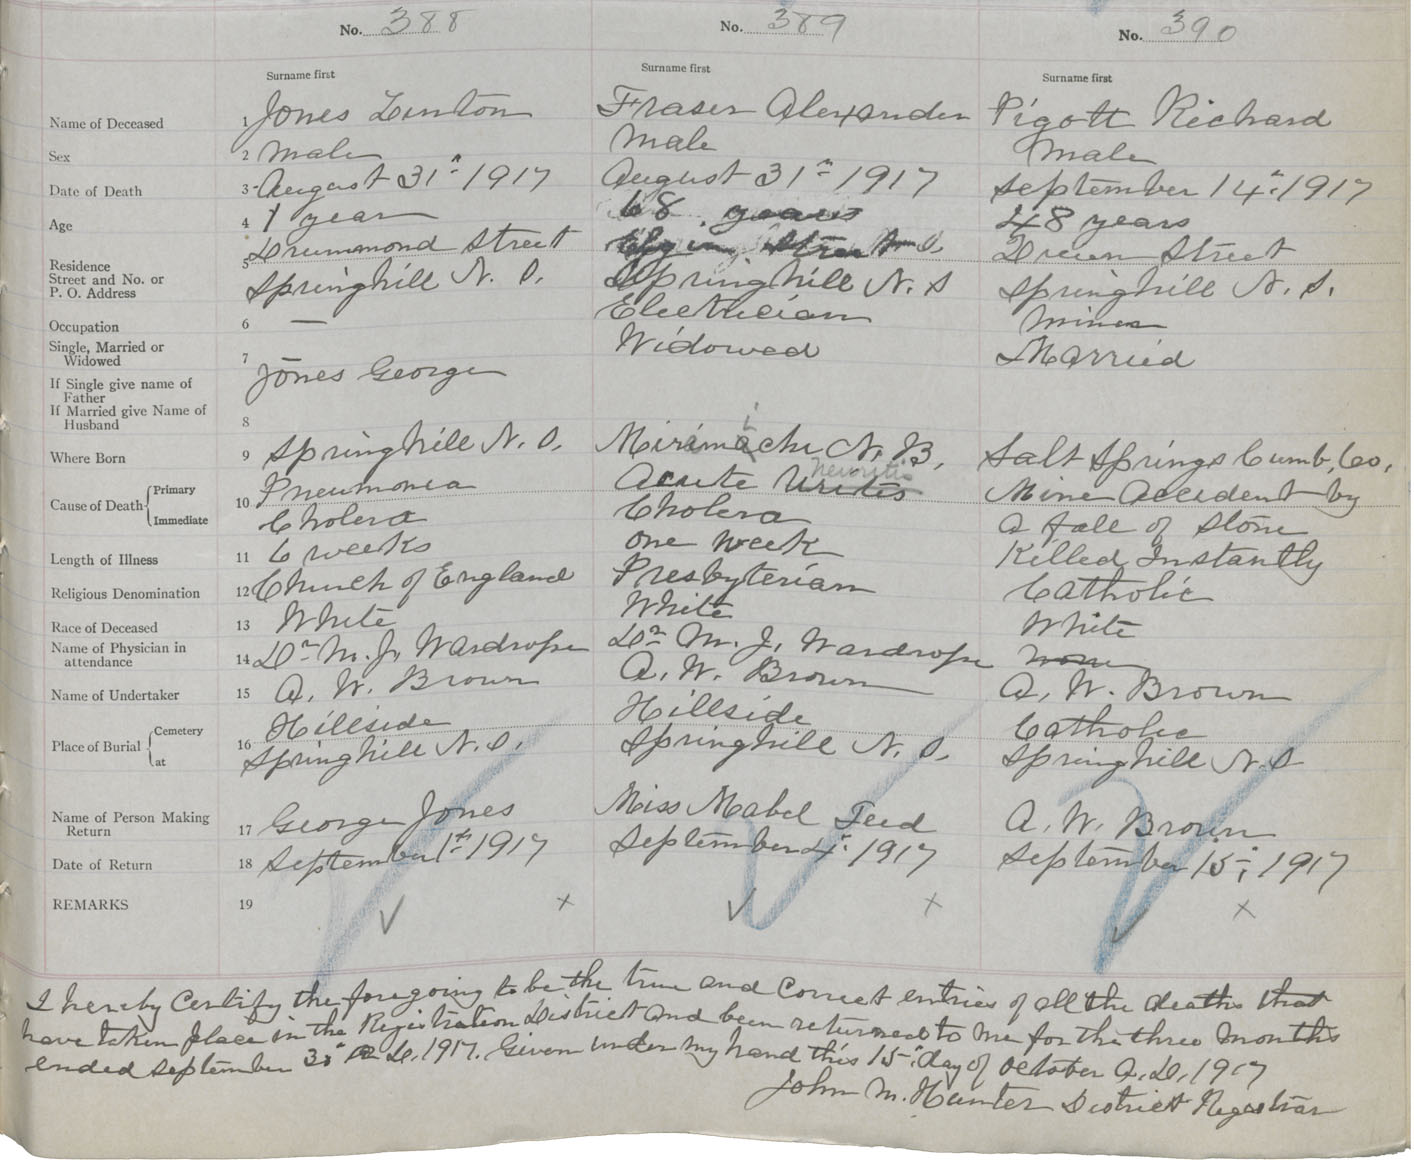 No. 388
No. 389
No. 390
Surname first
Surname first
Surname first
Name of Deceased 1 Jones Linton
Fraser Alexander
Pigott Richard
Sex 2 Male
Male
Male
Date of Death 3 August 31st 1917
August 31st 1917
September 14th 1917
Age 4 1 year
68 years
48 years
Residence
Street and No. or
P. O. Address
5 Drummond Street
Springhill N. S.
Street
Springhill N. S
Street
Springhill N. S.
Occupation 6 —
Electrician
Miner
Single, Married or
Widowed
7
Widowed
Married
If Single give name of
Father
Jones George
If Married give Name of
Husband
8
Where Born 9 Springhill N. S.
Mirimachi N. B.
Salt Springs Cumb. Co.
Cause of Death Primary
Immediate
10 Pneumonia
Cholera
Acute neuritis
Cholera
Mine Accident by
a fall of stone
Length of Illness 11 6 weeks
one week
Killed Instantly
Religious Denomination 12 Church of England
Presbyterian
Catholic
Race of Deceased 13 White
White
White
Name of Physician in
attendance
14 Dr. M. J. Wardrope
Dr. M. J. Wardrope
none
Name of Undertaker 15 A. W. Brown
A. W. Brown
A. W. Brown
Place of Burial Cemetery
at
16 Hillside
Springhill N. S.
Hillside
Springhill N. S.
Catholic
Springhill N. S
Name of Person Making
Return
17 George Jones
Miss Mabel Teed
A. W. Brown
Date of Return 18 September 1st 1917
September 4th 1917
September 15th 1917
REMARKS 19
I hereby certify the foregoing to be the true and correct entries of all the deaths that
have taken place in the Registration District and been returned to me for the three months
ended September 30th A. D. 1917. Given under my hand this 15th day of October A. D. 1917
John M. Hunter District Registrar